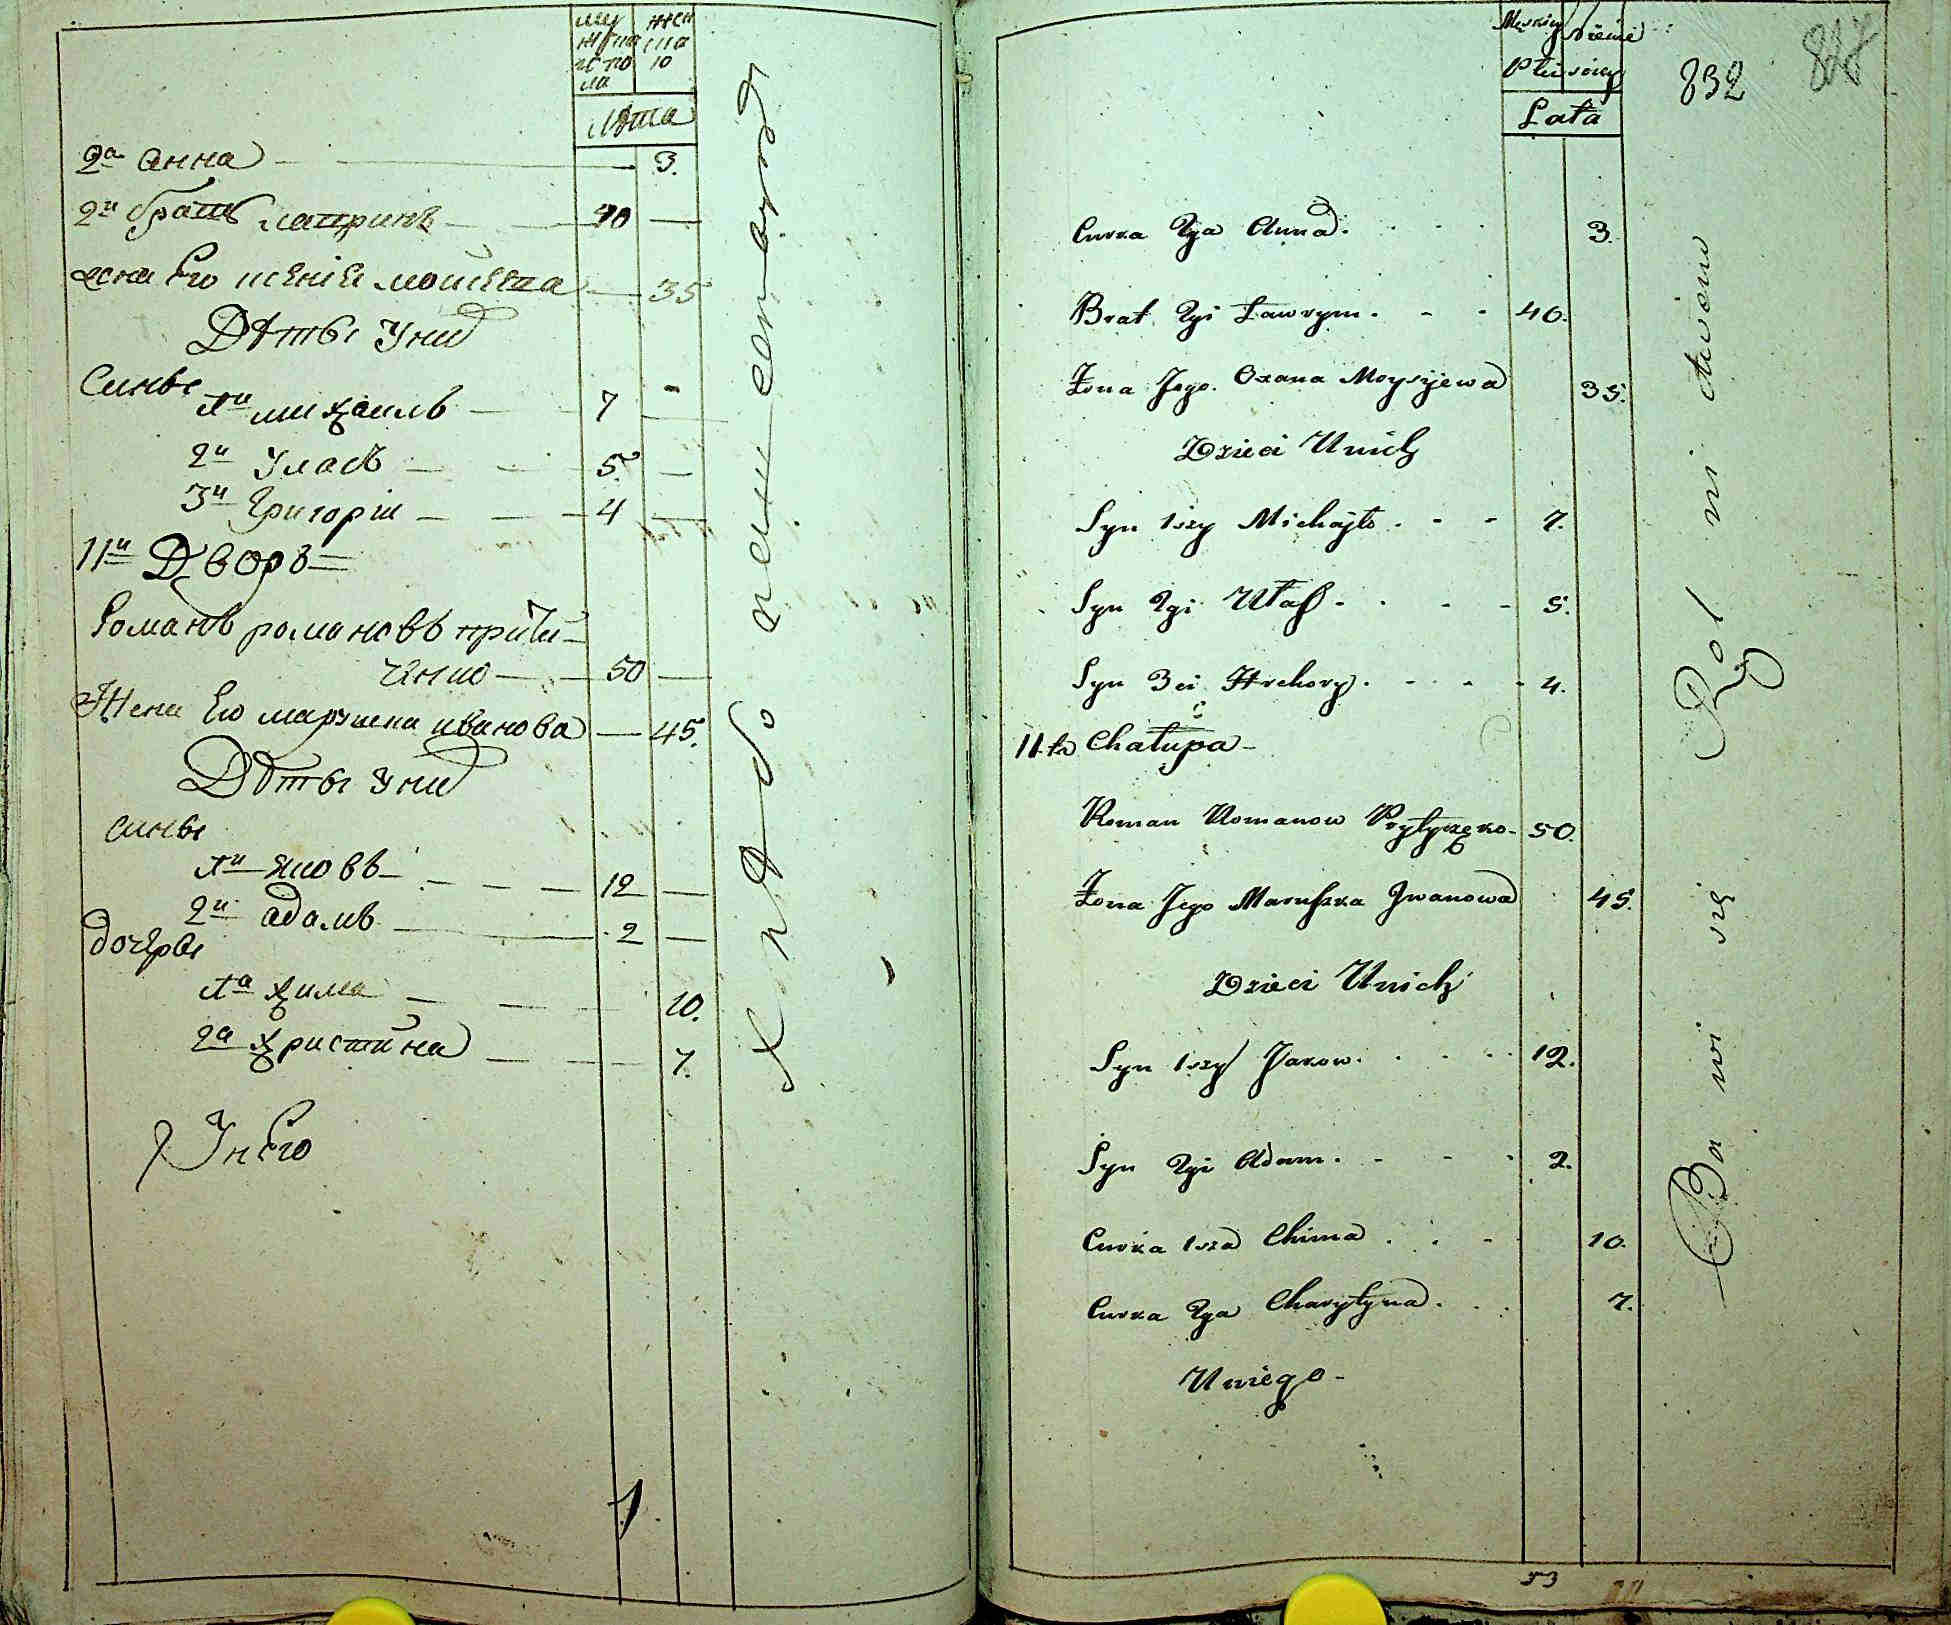 му жеска
жска го
го по
ла
лѣта
2а Анна 3.
2й братъ Лавринъ 40
жена Его ксеніея мойсеева 35
Дѣты Уних
Синве
1й михаилъ 7
2й Уласъ 5
3й Григорій 4
11й Дворъ
Романъ романовъ прити-
чнко 50
Жена Его марушка иванова 45.
Дѣты Уних
синве
1й яковъ 12
2й адамъ 2
дочере
1а хима 10.
2а христина 7.
Унего
Męskiey Żeńskiey
Płci
Lata
832
Curka 2ga Anna 3.
Brat 2gi Ławrym 40.
Żona Jego Oxana Moysijewa 35.
Dzieci Unich
Syn 1szy Michajło 7.
Syn 2gi Ułaß 5.
Syn 3ci Hrehory 4.
11-ta Chałupa
Roman Romanow Prytyczko 50.
Żona Jego Maruszka Jwanowa 45.
Dzieci Unich
Syn 1szy Jakow 12.
Syn 2gi Adam 2.
Curka 1sza Chima 10.
Curka 2ga Charytyna 7.
Uniego
Bawi się Rolnictwem
53